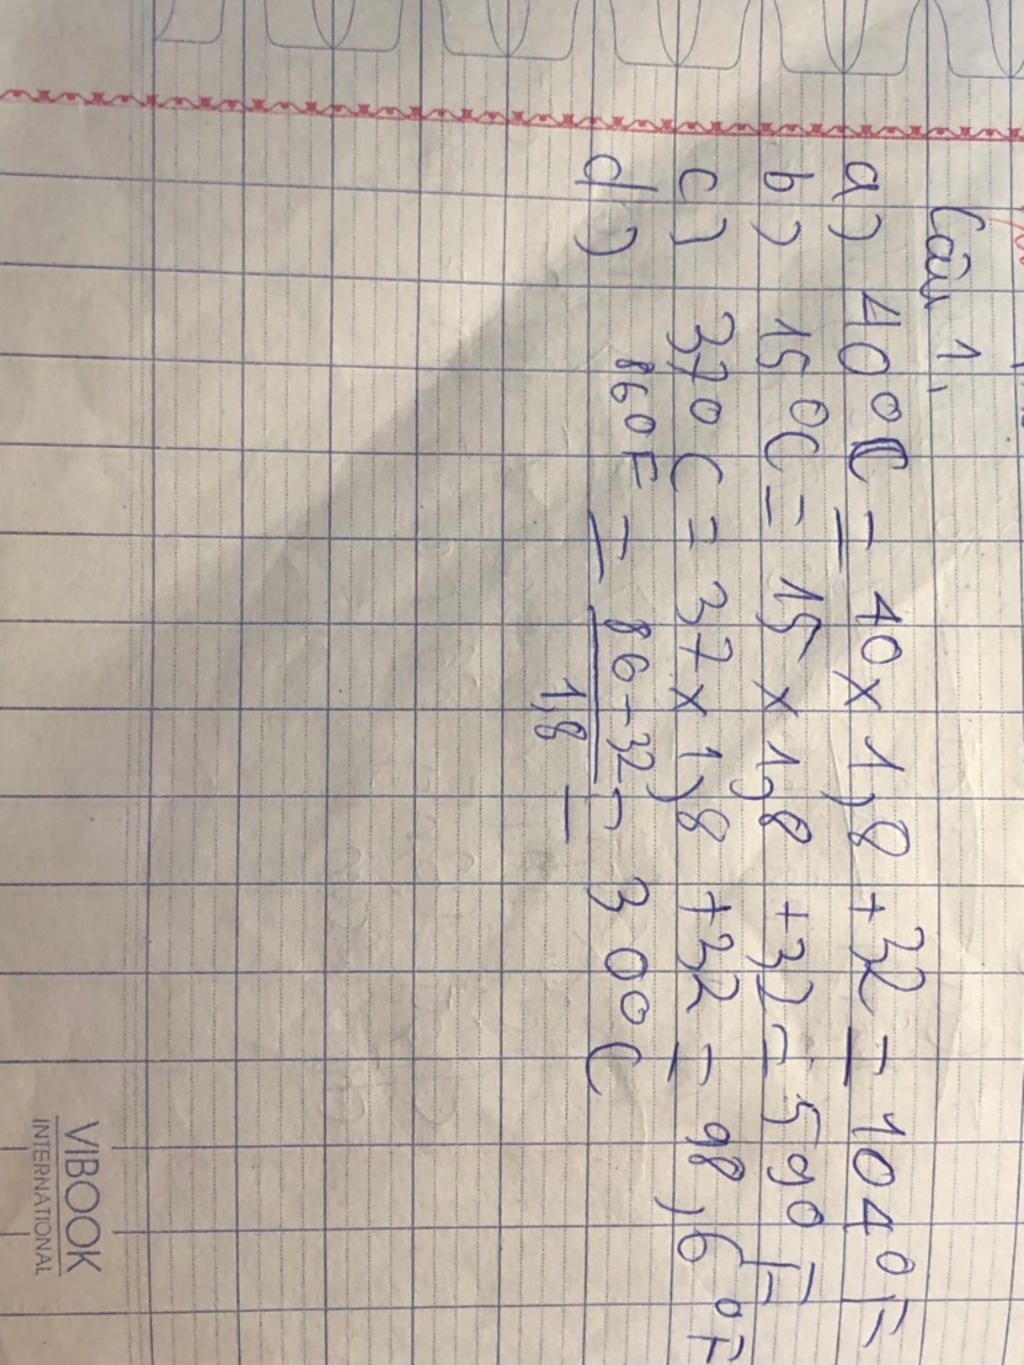 Câu 1,
a) 40°C = 40 x 1,8 + 32 = 104°F
b) 15°C = 15 x 1,8 + 32 = 59°F
c) 37°C = 37 x 1,8 + 32 = 98,6°F
d) 86°F = 86 - 32 / 1,8 = 30°C
VIBOOK
INTERNATIONAL